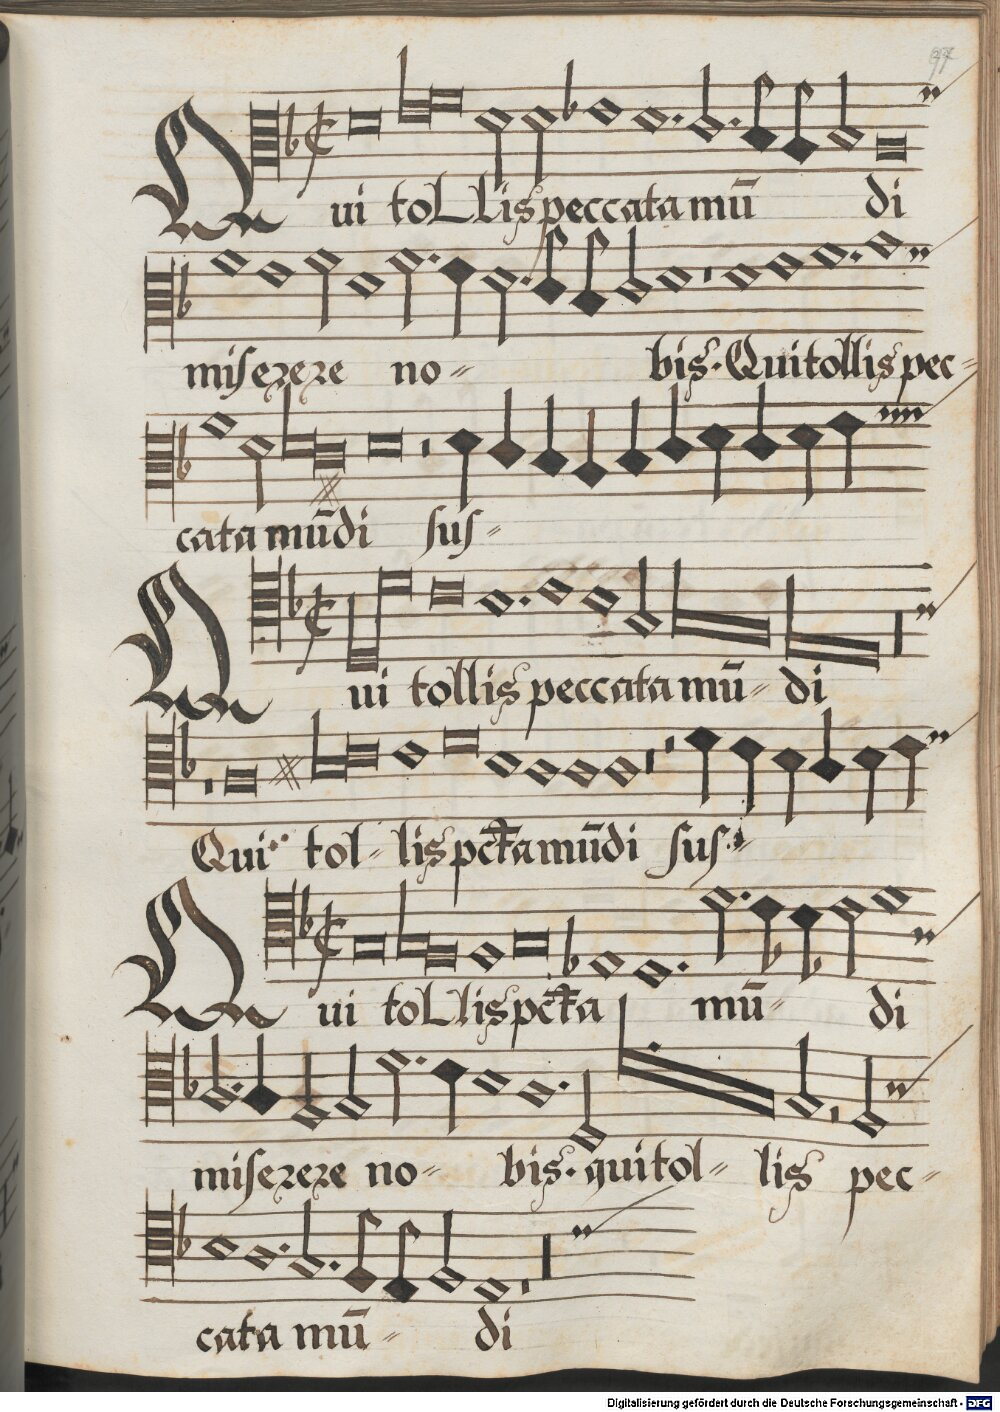 97
Qui tollis peccata mū di
miserere no- bis. Qui tollis pec-
cata mūdi sus-
Qui tollis peccata mū- di
Qui tol- lis pcta mūdi sus-
Qui tollis pcta mū- di
miserere no- bis. qui tol- lis pec-
cata mū- di
Digitalisierung gefördert durch die Deutsche Forschungsgemeinschaft - DFG